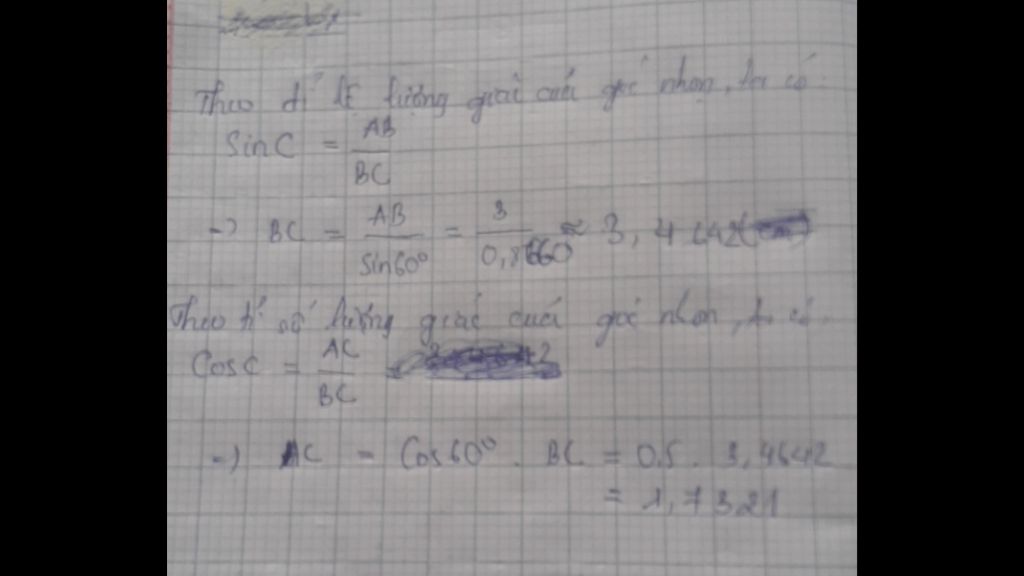 Theo tỉ lệ lượng giác cuả góc nhọn, ta có:
SinC = AB/BC
-> BC = AB/Sin60° = 3/0,8660 ≈ 3,4642
Theo tỉ số lượng giác cuả góc nhọn, ta có:
CosC = AC/BC
-> AC = Cos60°. BC = 0,5. 3,4642
= 1,7321